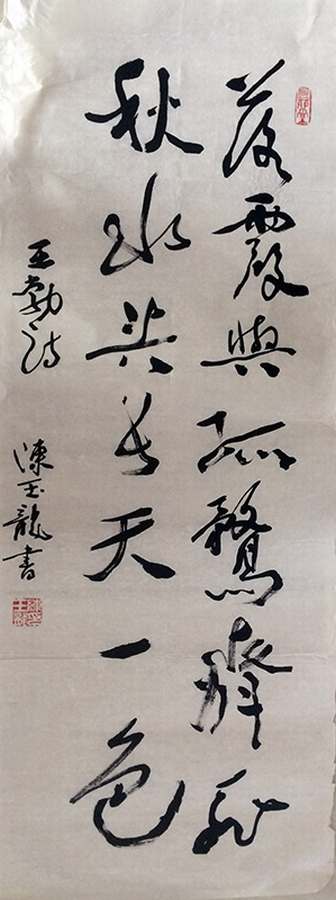 落霞與孤鶩齊飛
秋水共長天一色
王勃詩
陳玉龍書